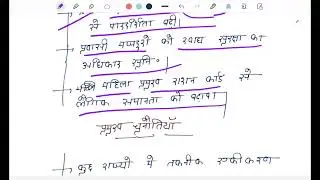 से पारदर्शिता बढ़ी।
→ प्रवासी मजदूरों को खाद्य सुरक्षा का
अधिकार
→ महिला प्रमुख राशन कार्ड से
लैंगिक समानता को बढ़ावा
प्रमुख चुनौतियाँ
→ कुछ राज्यों में तकनीक एकीकरण